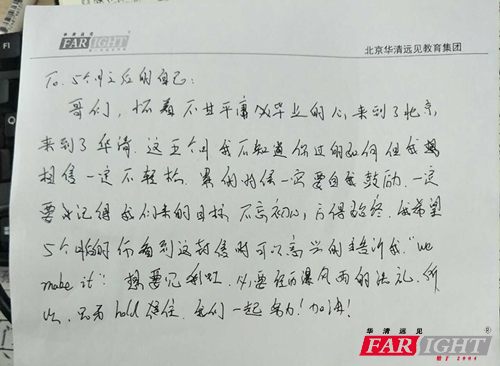 华清远见
FARSIGHT
北京华清远见教育集团
F1
To. 5个月之后的自己:
哥们, 怀着不甘平庸 毕业的心, 来到了北京,
来到了华清. 这五个月我不知道你过的如何但我想
相信一定不轻松. 累的时候一定要自我鼓励. 一定
要记得我们来的目标 不忘初心, 方得始终. 我希望
5个月后的你看到这封信时可以高兴的告诉我, "we
make it": 想要见彩虹, 必要经历暴风雨的洗礼. 所
以, 只有hold 住. 我们一起努力! 加油!
华清远见
FARSIGHT®
始于2004